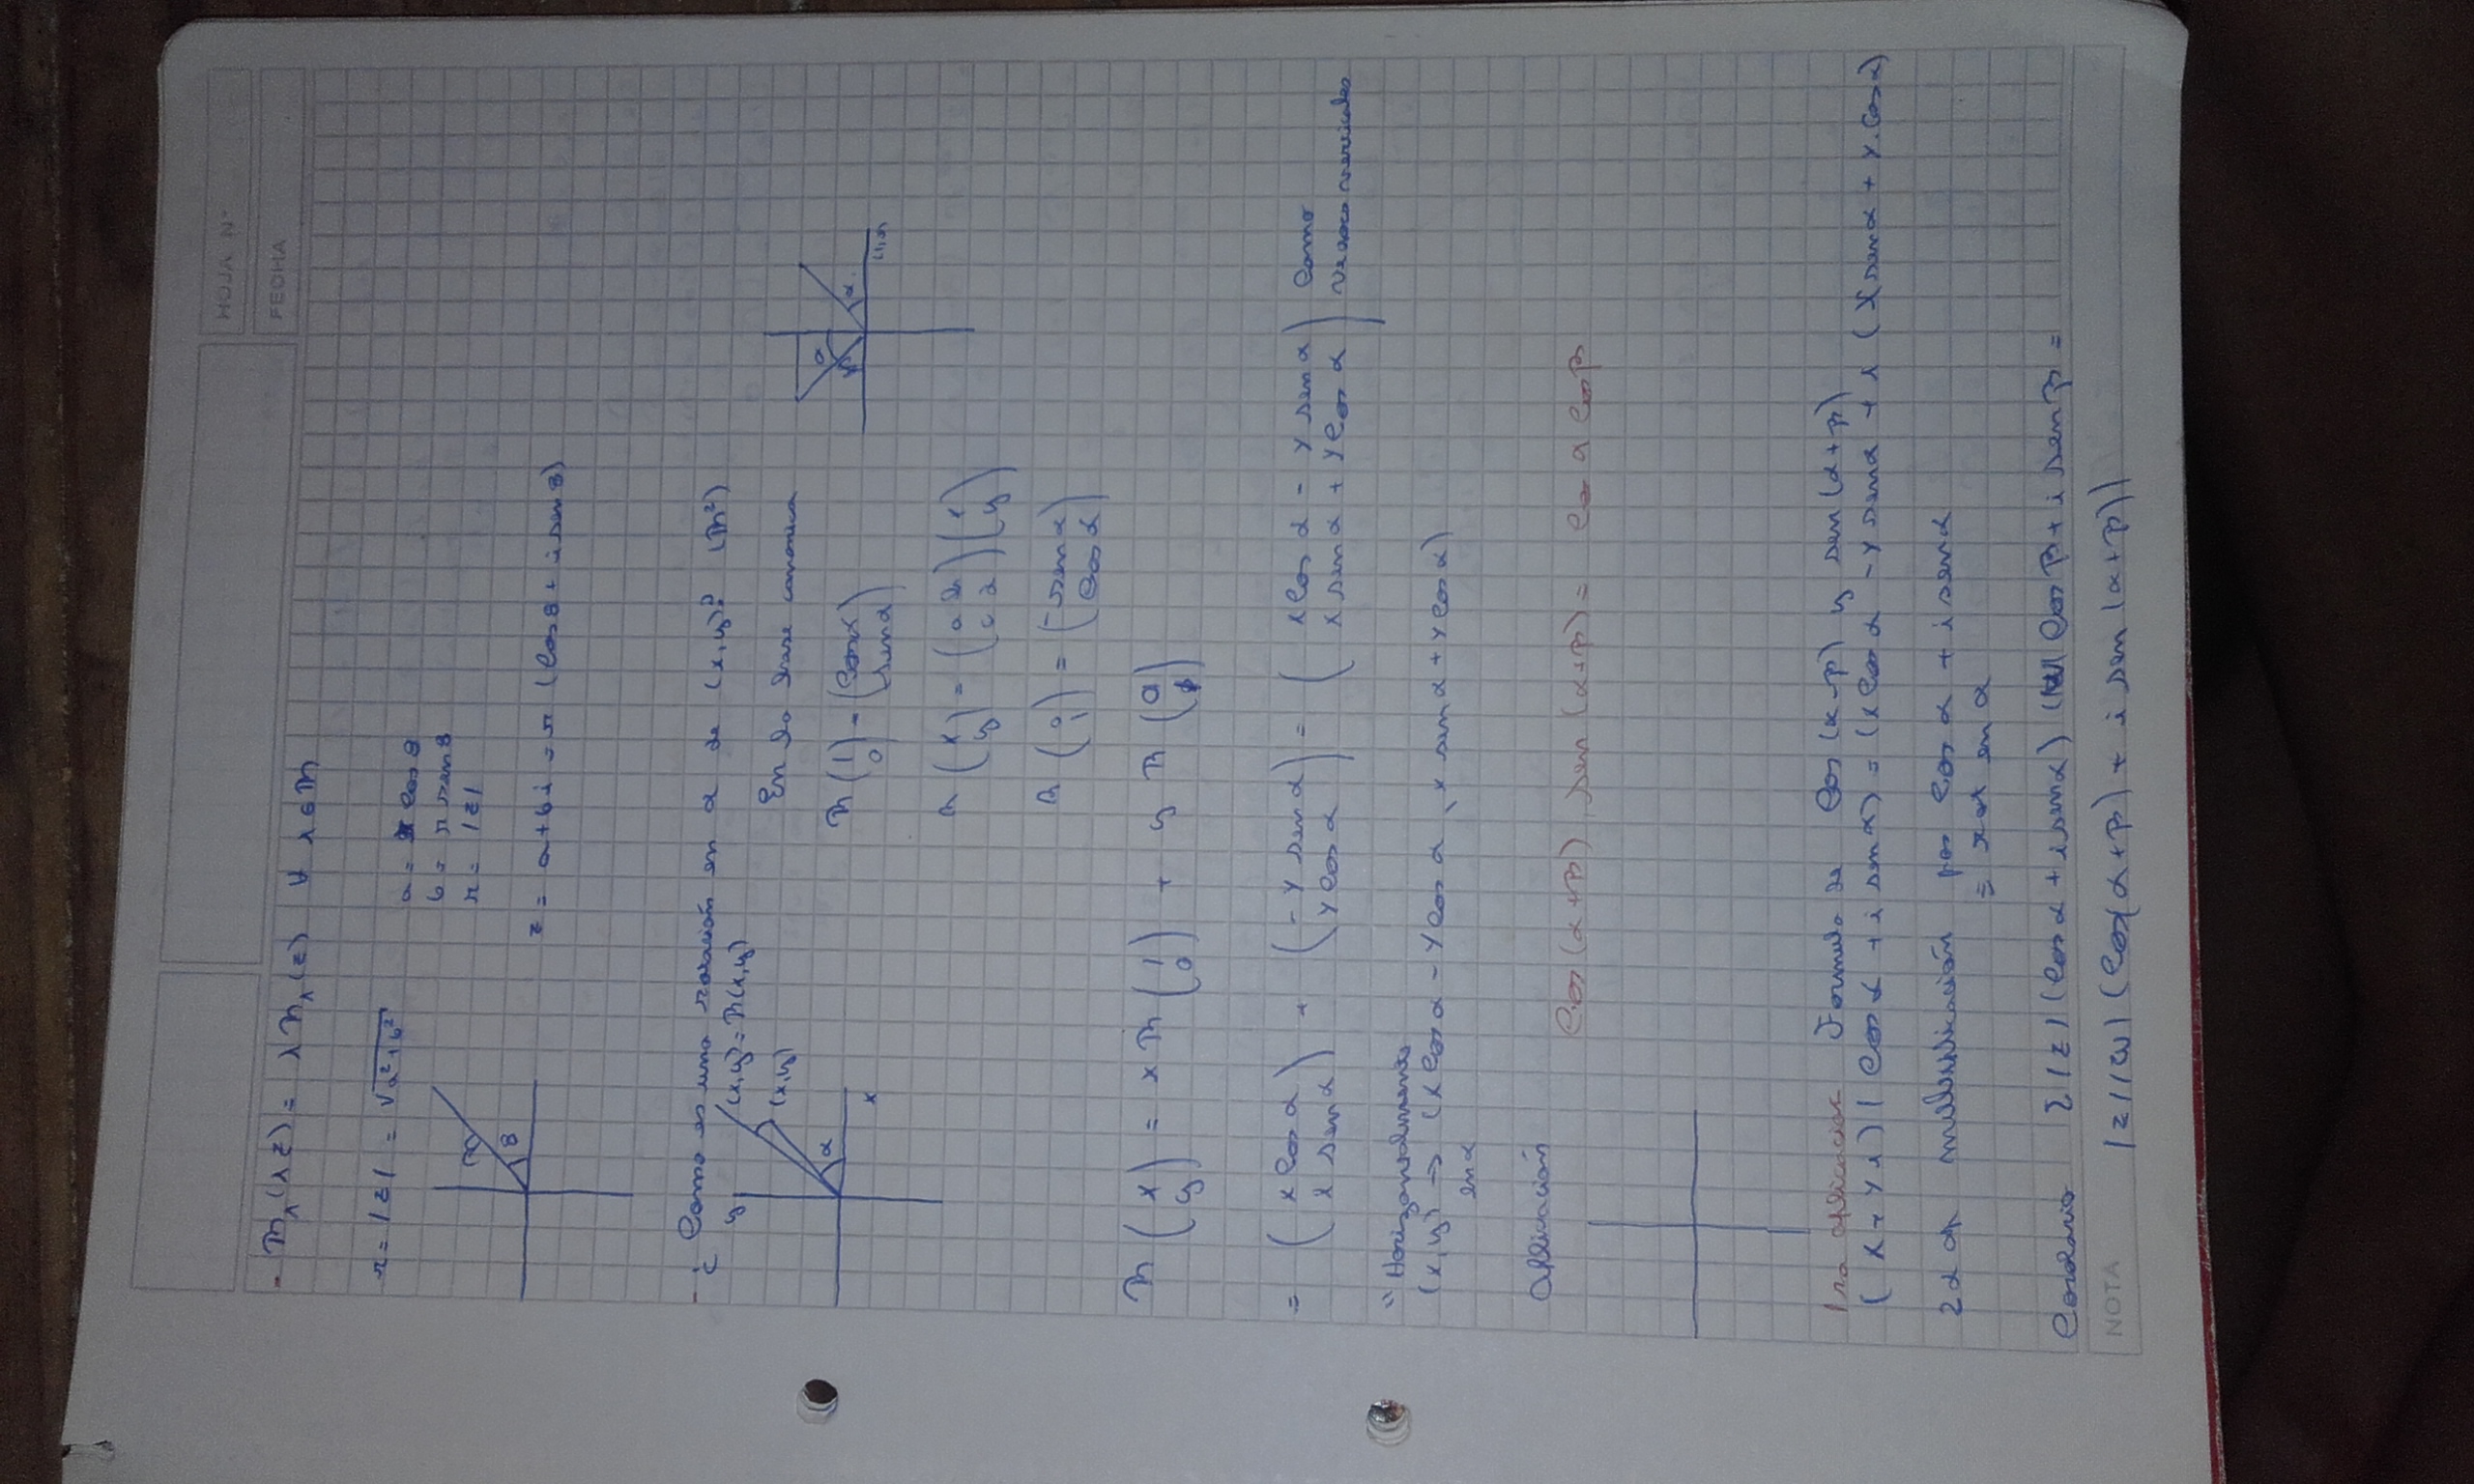 HOJA N°
FECHA
- R_λ(λz) = λ R_λ(z) ∀ λ ∈ R
r = |z| = √a²+b²
a = r cos θ
b = r sen θ
r = |z|
θ
z = a+bi = r (cos θ + i sen θ)
- ¿Como es una rotación en α de (x,y)? (R²)
y
(x,y) = R(x,y)
(x,y)
α
x
En la base canonica
R (1 0) = (cos α sen α)
α
α
R (x y) = (a b c d) (x y)
R (0 1) = (- sen α cos α)
R (x y) = x R (1 0) + y R (0 1)
= (x cos α x sen α) + (- y sen α y cos α) = (x cos α - y sen α x sen α + y cos α) Como
verticales
" Horizontalmente
(x,y) → (x cos α - y cos α, x sen α + y cos α)
en α
Aplicación
Cos (α+β), sen (α+β) = cos α cos β
1ra aplicacion Formula de Cos (α-β) y sen (α+β)
(x + y i) ( cos α + i sen α) = (x cos α - y sen α + i (x sen α + y.cos α)
2d ap multiplicación por cos α + i sen α
≡ rot en α
Corolario Σ|z| (cos α + i sen α) (|w| cos β + i sen β =
NOTA
|z||w| (cos(α+β) + i sen (α+β))